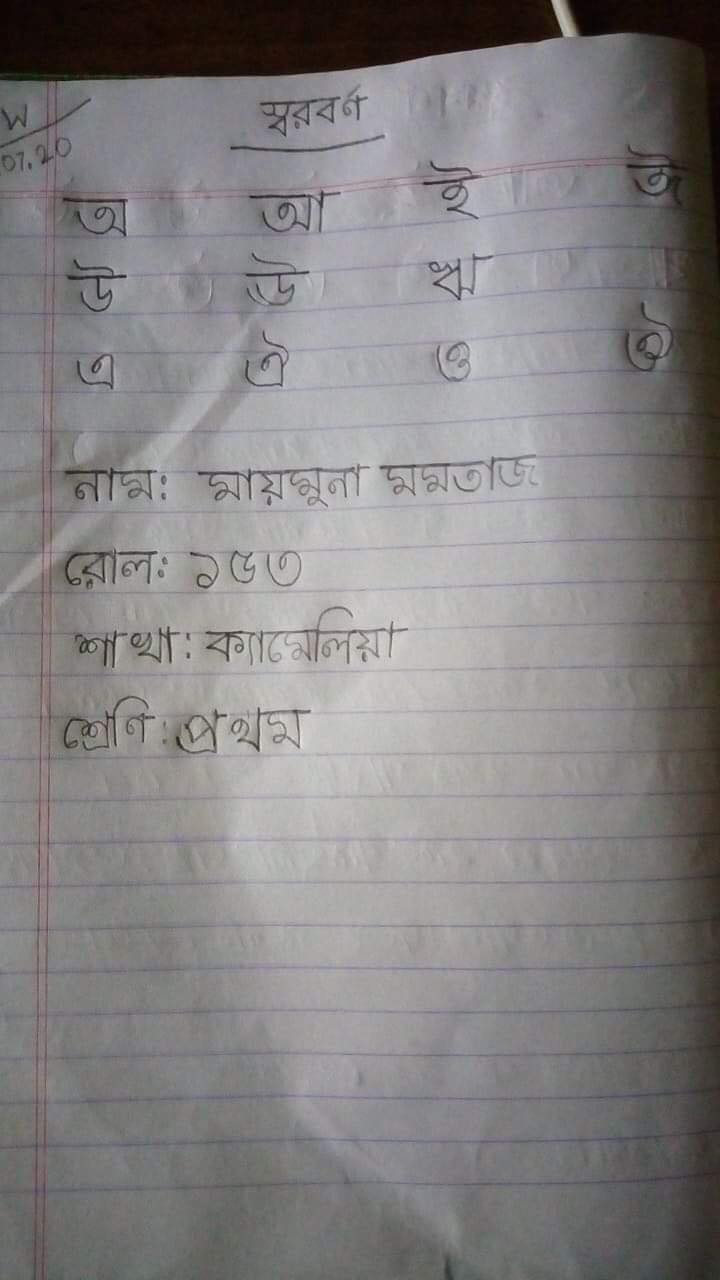 W
07.20
স্বরবর্ণ
অ আ ই ঈ
উ ঊ ঋ
এ ঐ ও ঔ
নাম: মায়মুনা মমতাজ
রোল: ১৫৩
শাখা: ক্যামেলিয়া
শ্রেণি: প্রথম